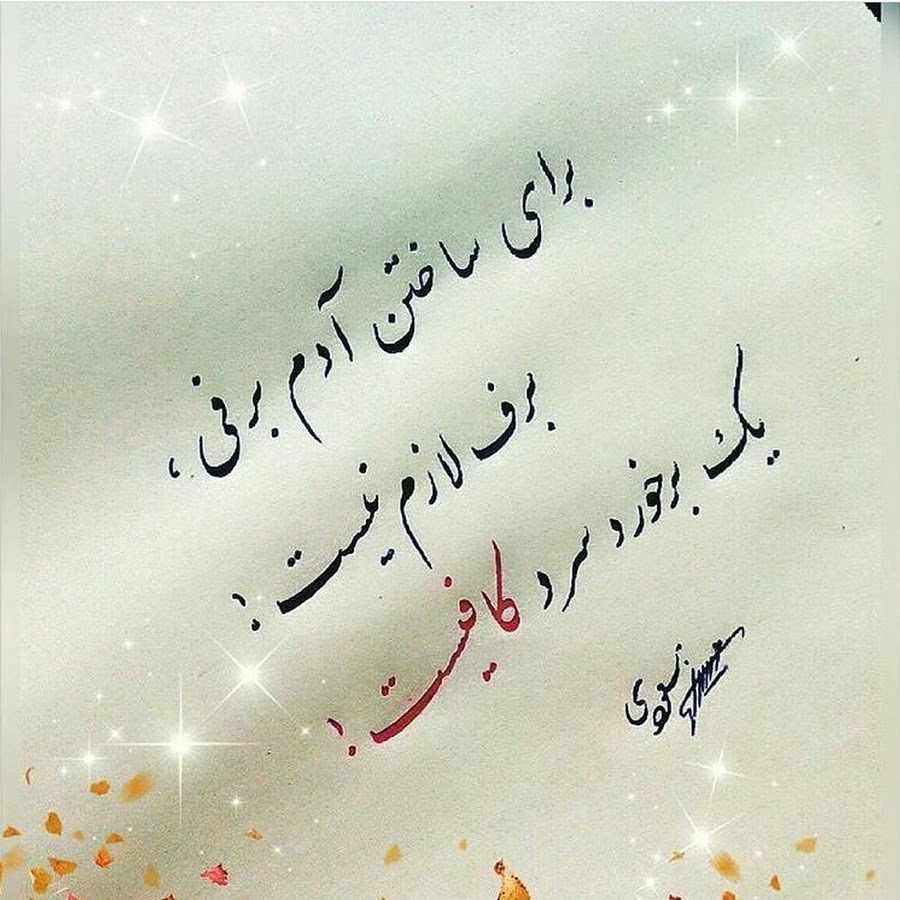 برای ساختن آدم برفی،
برف لازم نیست!
یک برخورد سرد کافیست!